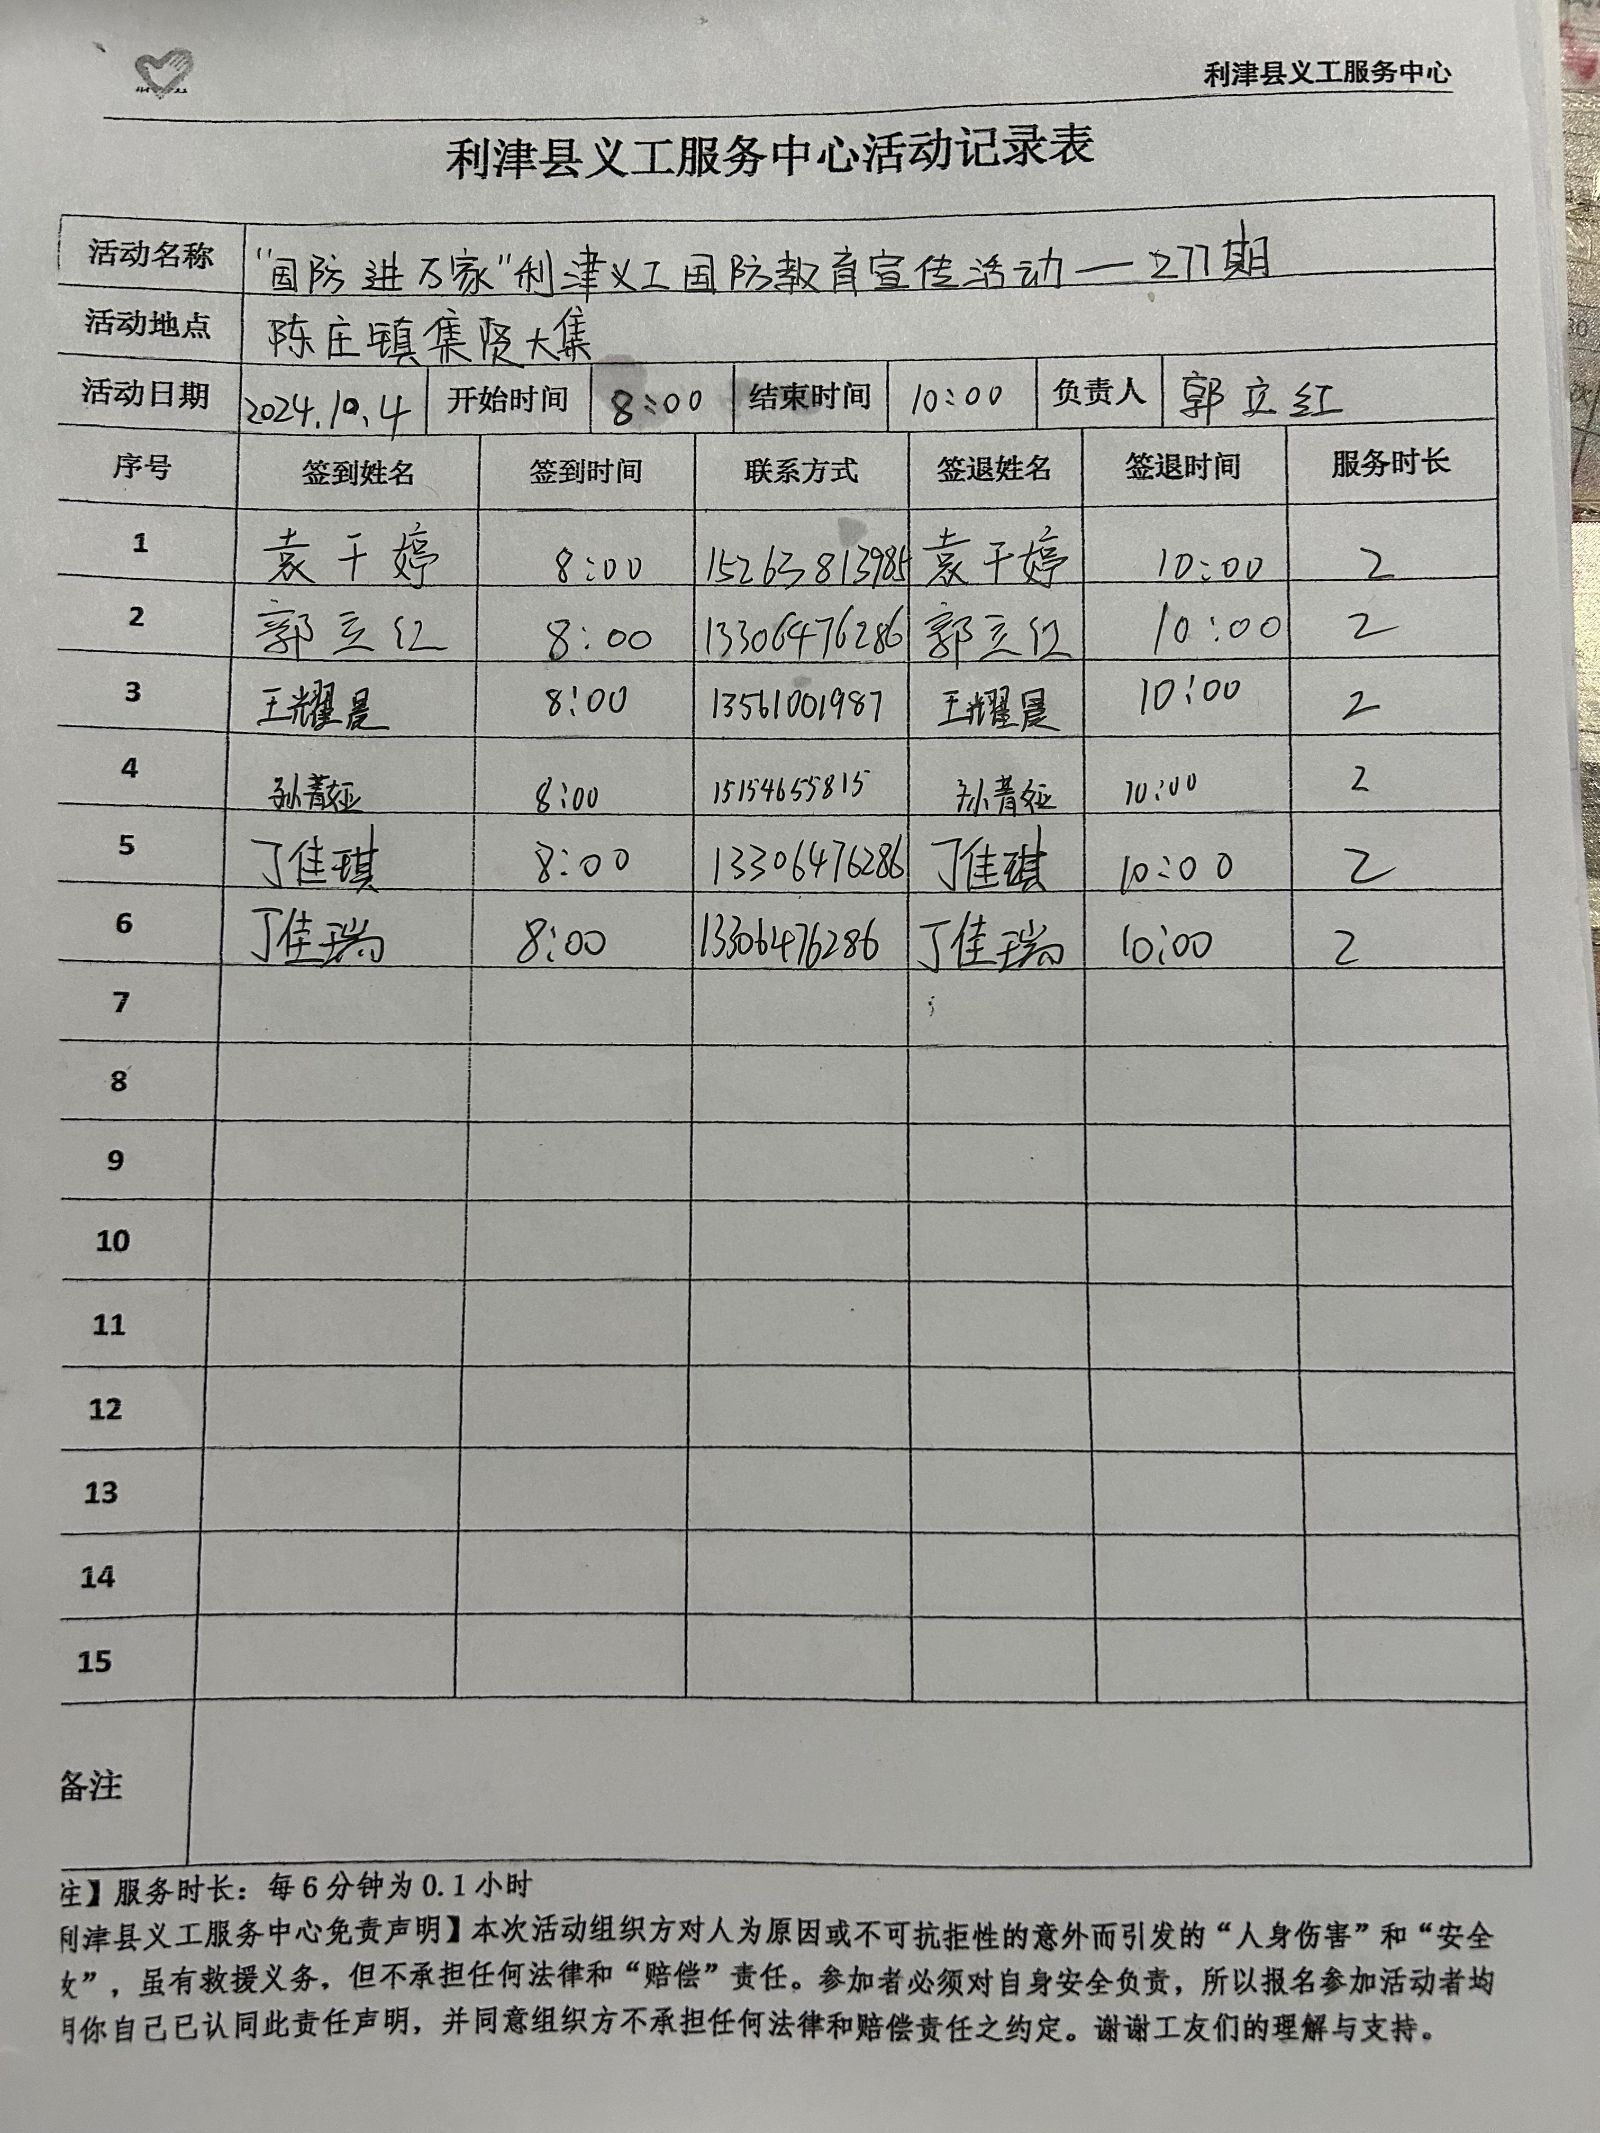 利津县义工服务中心
利津县义工服务中心活动记录表
活动名称 “国防进万家”利津义工国防教育宣传活动—277期
活动地点 陈庄镇集贤大集
活动日期 2024.10.4 开始时间 8:00 结束时间 10:00 负责人 郭立红
序号 签到姓名 签到时间 联系方式 签退姓名 签退时间 服务时长
1 袁千婷 8:00 15263813985 袁千婷 10:00 2
2 郭立红 8:00 13306476286 郭立红 10:00 2
3 王耀晨 8:00 13561001987 王耀晨 10:00 2
4 8:00 15154655815 10:00 2
5 丁佳琪 8:00 13306476286 丁佳琪 10:00 2
6 丁佳瑞 8:00 13306476286 丁佳瑞 10:00 2
7
8
9
10
11
12
13
14
15
备注
注】服务时长：每6分钟为0.1小时
利津县义工服务中心免责声明】本次活动组织方对人为原因或不可抗拒性的意外而引发的“人身伤害”和“安全
故”，虽有救援义务，但不承担任何法律和“赔偿”责任。参加者必须对自身安全负责，所以报名参加活动者均
明你自己已认同此责任声明，并同意组织方不承担任何法律和赔偿责任之约定。谢谢工友们的理解与支持。